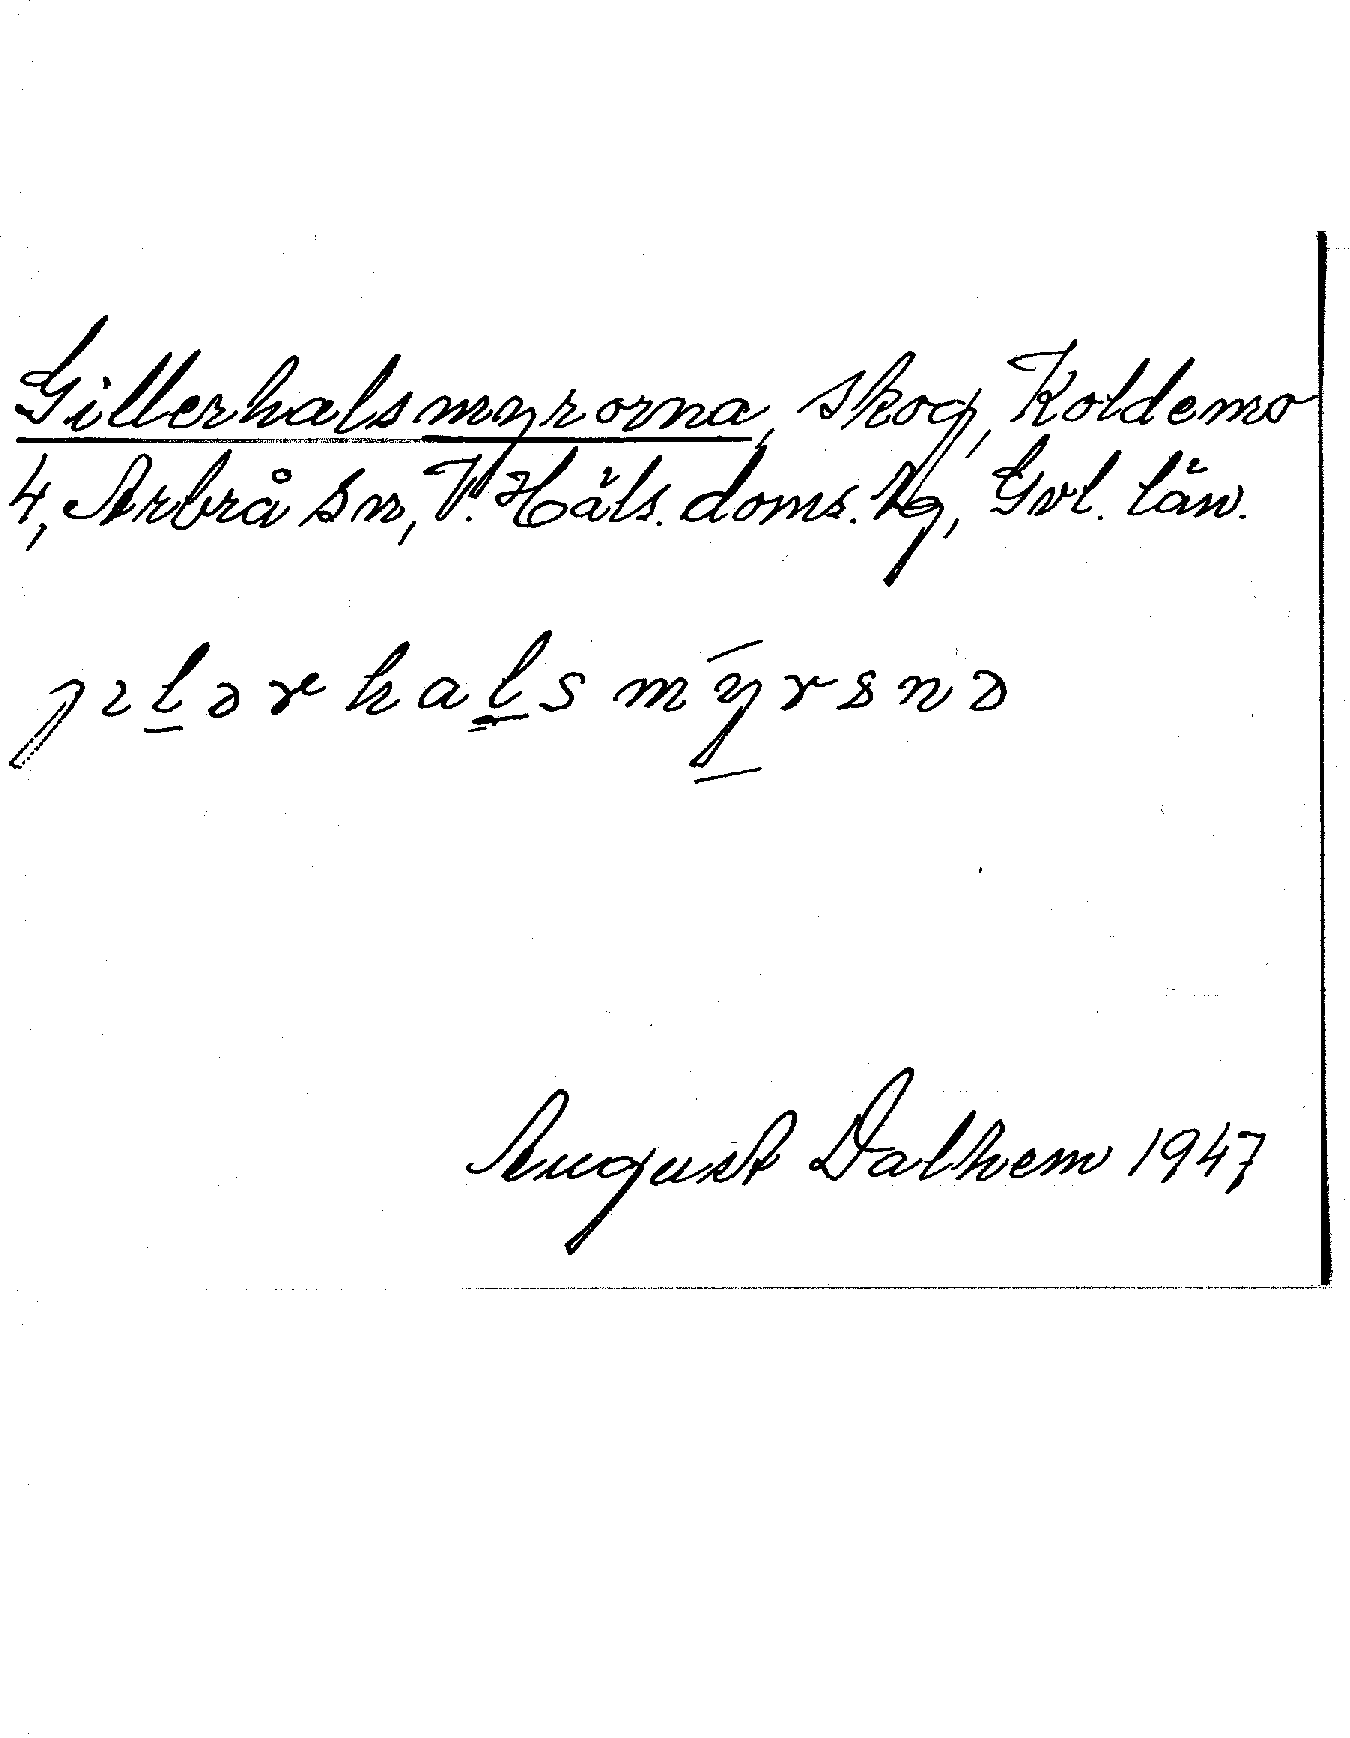 Gillerhalsmyrorna, skog, Koldemo
4, Arbrå sn, V. Häls. doms. hg, Gvl. län.
jɪl̠ərhal̠s mȳ̠rsnə
August Dalhem 1947